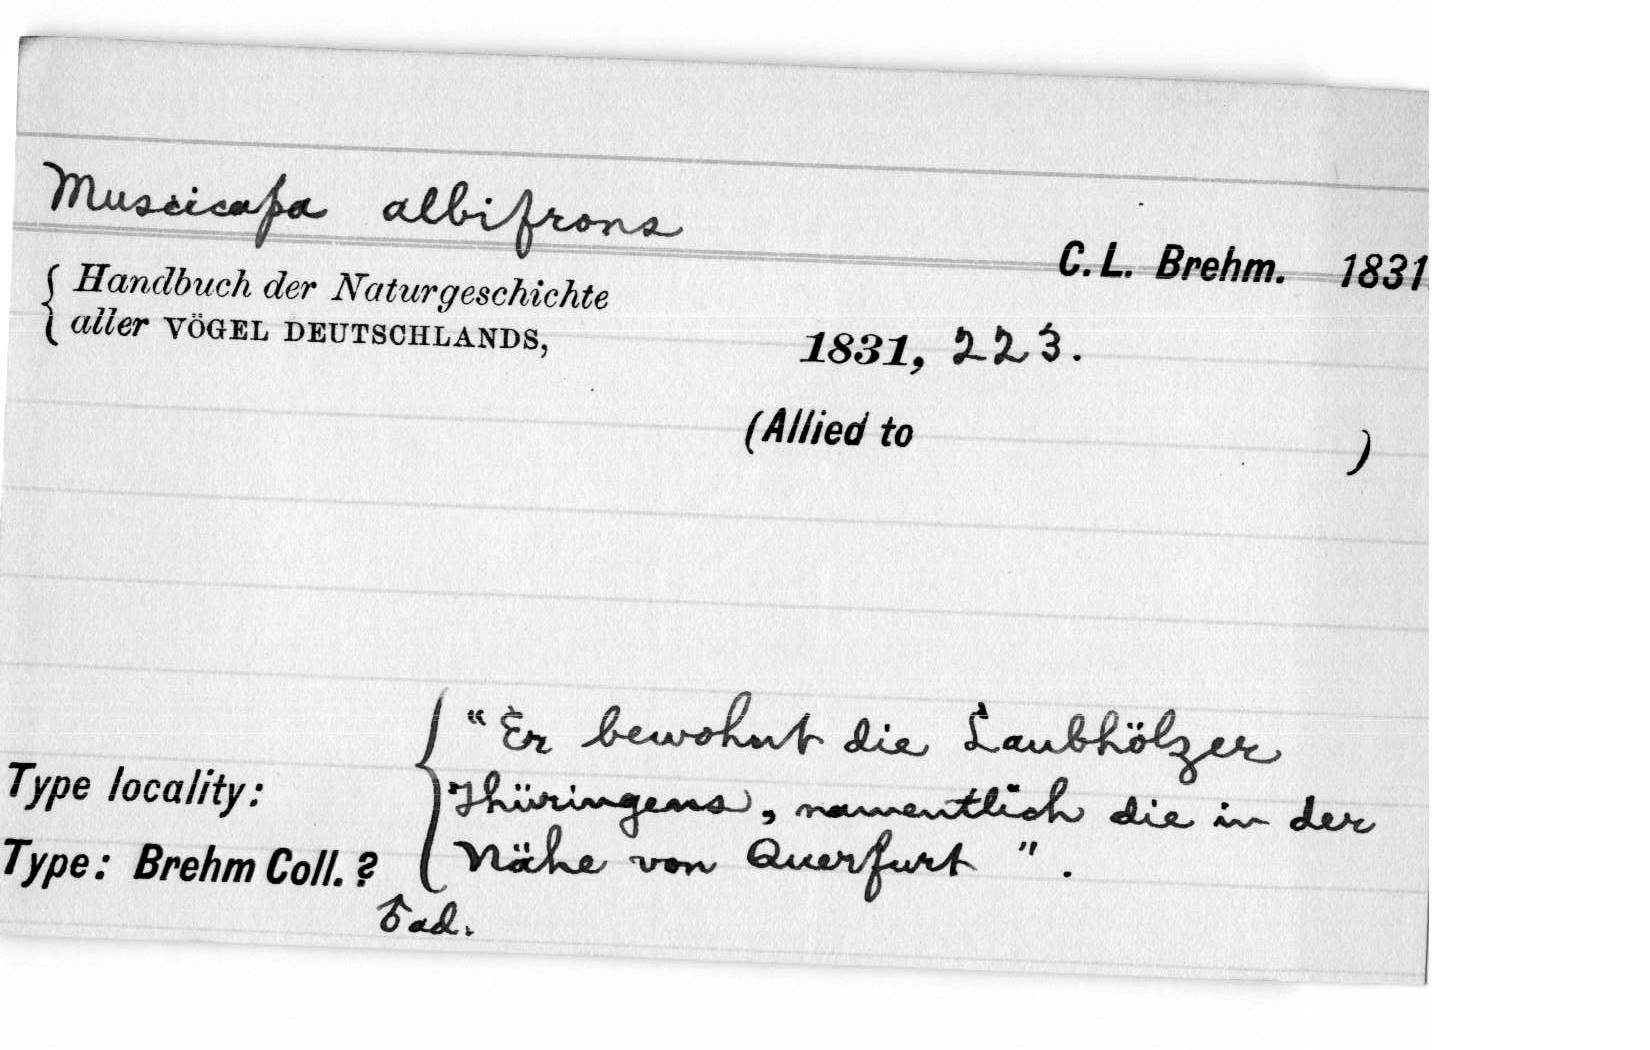 Muscicapa albifrons
C. L. Brehm. 1831
{ Handbuch der Naturgeschichte
aller VÖGEL DEUTSCHLANDS,
1831, 223.
(Allied to )
Type locality: { "Er bewohnt die Laubhölzer
Thüringens, namentlich die in der
Nähe von Querfurt".
Type: Brehm Coll. ?
♂ ad.